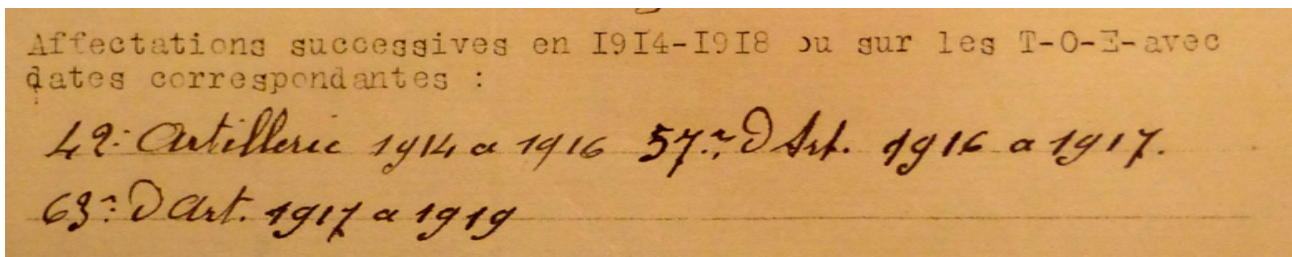 Affectations successives en I9I4-I9I8 ou sur les T-O-E-avec
dates correspondantes :
42e Artillerie 1914 a 1916 57e D Art. 1916 a 1917.
63e D Art. 1917 a 1919